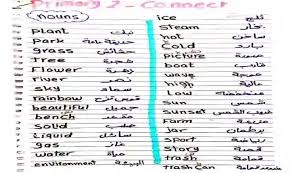 Primary 2 - Connect
(nouns)
plant نبات
park حديقة عامة
grass حشائش
Tree شجرة
Flower زهرة
river نهر
sky سماء
rainbow قوس قزح
beautiful جميل
bench
solid صلب
Liquid سائل
gas غاز
water مياه
environment البيئة
ice ثلج
steam بخار
hot ساخن
Cold بارد
picture صورة
boat قارب
wave موجة
high
Low منخفض
sun شمس
sunset غروب الشمس
Farm مزرعة
Jar برطمان
sport رياضة
story قصة
trash قمامة
trash can